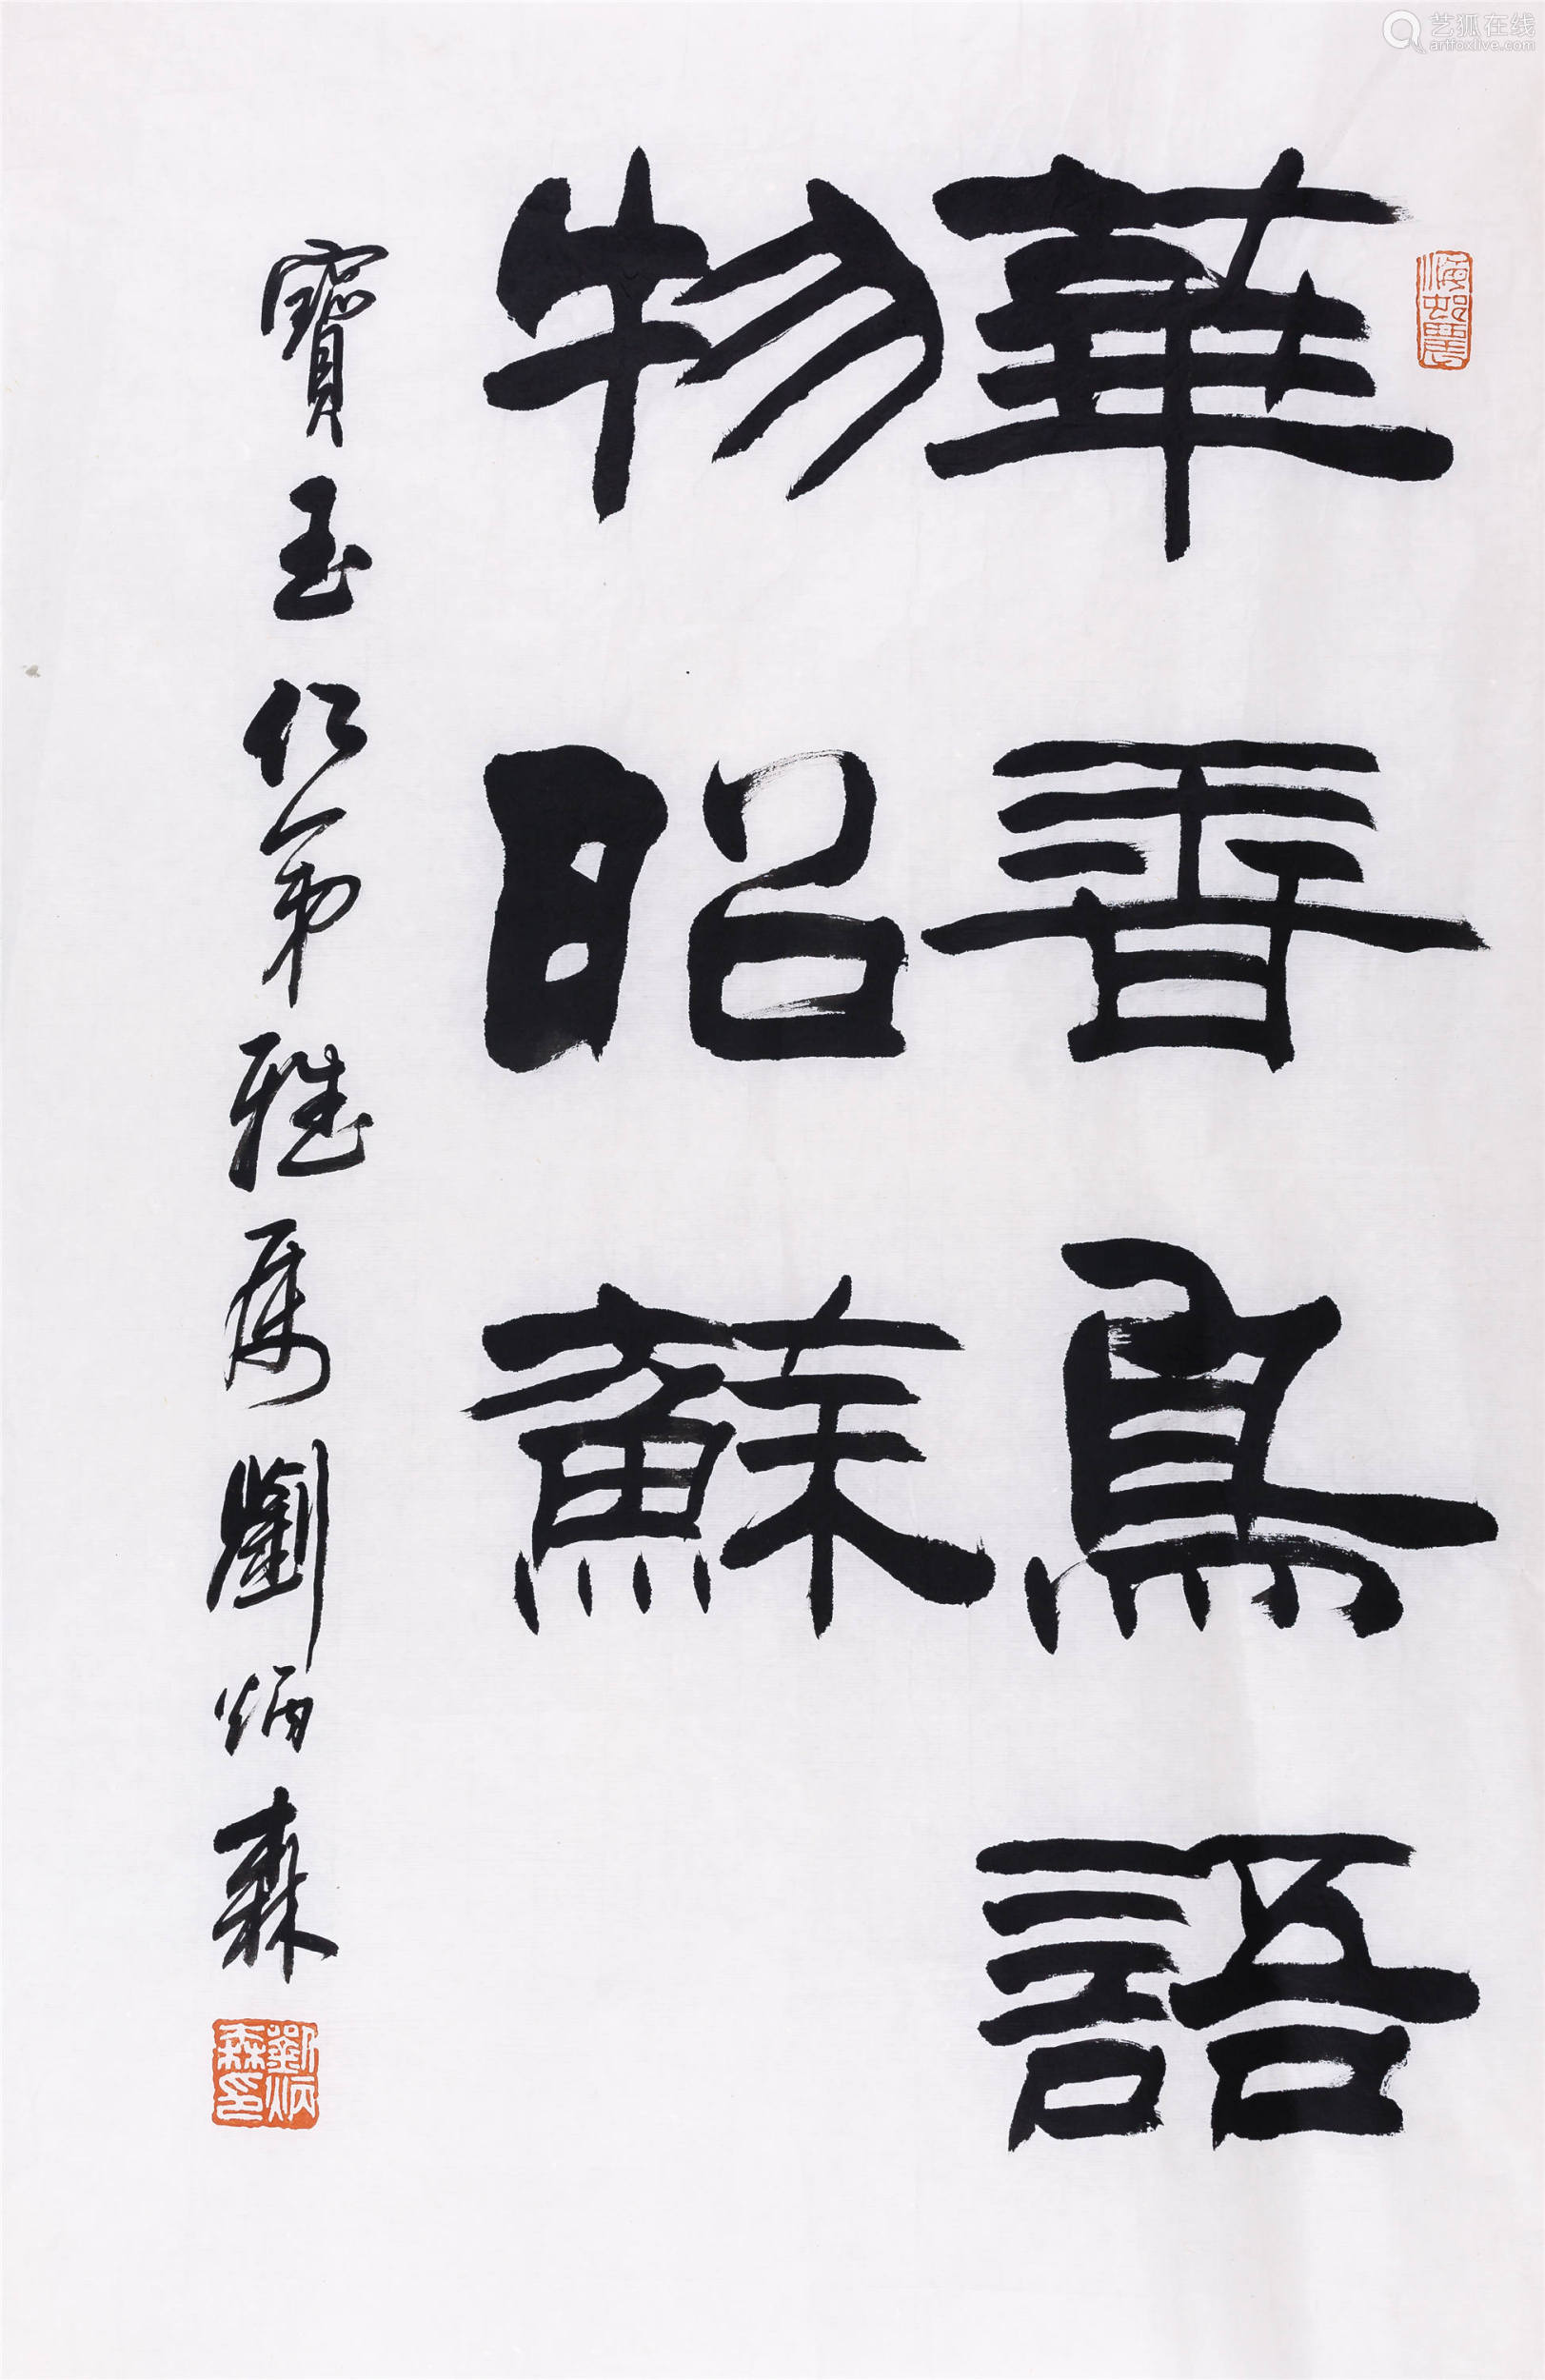 華香鳥語
物昭蘇
寶玉仁弟雅属劉炳森
劉炳森印
艺狐在线
artfoxlive.com